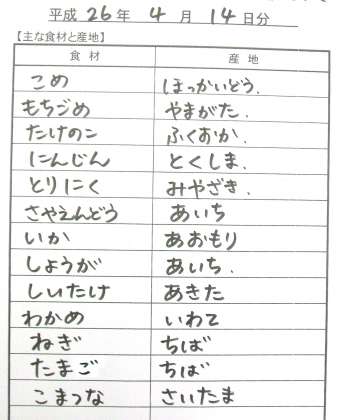 平成 26 年 4 月 14 日分
【主な食材と産地】
食材 産地
こめ ほっかいどう.
もちごめ やまがた.
たけのこ ふくおか.
にんじん とくしま.
とりにく みやざき.
さやえんどう あいち
いか あおもり
しょうが あいち.
しいたけ あきた
わかめ いわて
ねぎ ちば
たまご ちば
こまつな さいたま